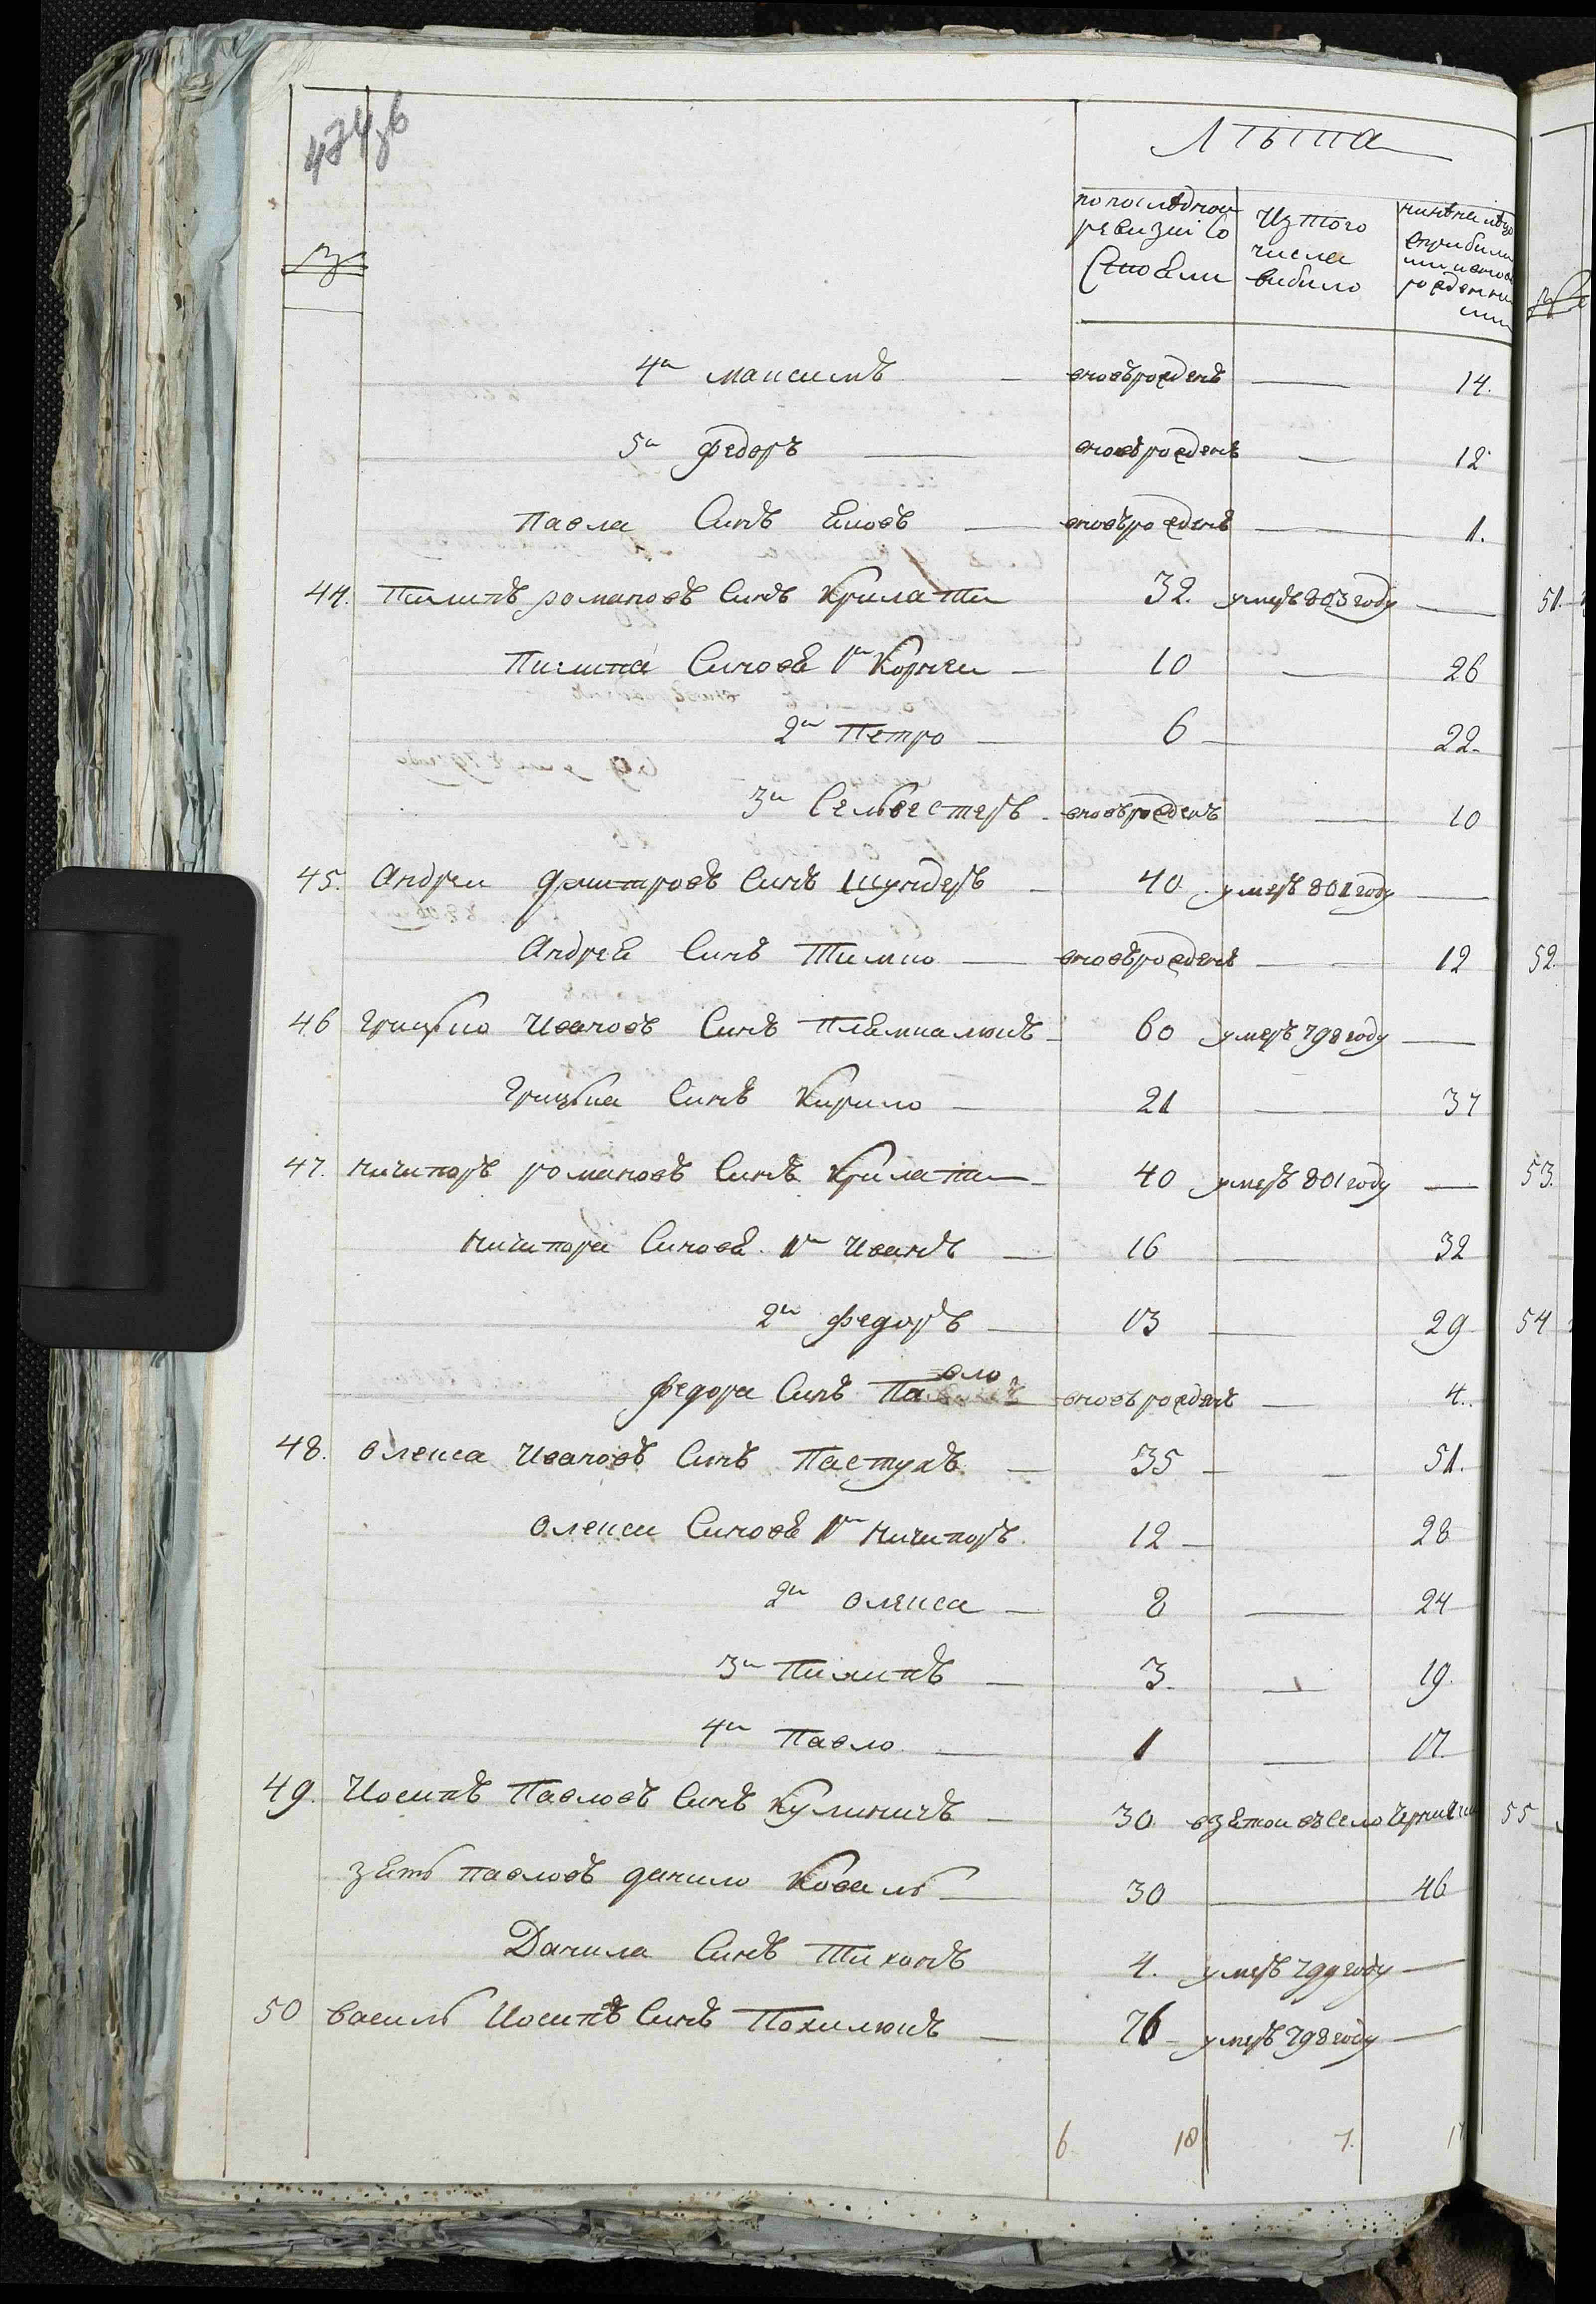 474зв
Лѣта
№
по последной ревизии состоѣли
Из того числа вибило
Нине на лицо с прибилими и вновь рожденними
4й Максимъ — вновърожденъ — 14.
5й Федоръ — вновърожденъ — 12
Павла Синъ Яковъ — вновърожденъ — 1.
44. Пилипъ романовъ Синъ Крилати 32. умеръ 803 году —
Пилипа Синовя 1й Корнеи — 10 — 26
2й Петро — 6 — 22.
3йСелвестеръ — вновърожденъ — 10
45. Андреи Дмитровъ Синъ Шундеръ — 40 умеръ 801 году —
Андрея Синъ Тимко — вновърожденъ — 12
46 Грицко Ивановъ Синъ Племкалюкъ — 60 умеръ 798 году —
Грицка Синъ Кирило — 21 — 37
47. Ничипоръ романовъ Синъ Крилати — 40 умеръ 801 году —
Ничипора Синовя 1й Иванъ — 16 — 32
2й Федоръ — 13 — 29
Федора Синъ Павло — вновърожденъ — 4.
48. Олекса Ивановъ Синъ Пастухъ — 35 — 51.
Олекси Синовя 1й Ничипоръ 12 — 28
2й Олекса — 8 — 24
3й Пилипъ — 3. — 19.
4й Павло — 1 — 17.
49. Иосипъ Павловъ Синъ Кулиничъ — 30 взятои въ село
зять Павловъ данило Коваль — 30 — 46
Данила Синъ Тихонъ 4. умеръ 799 году —
50 Василь Иосиповъ Синъ Похилюкъ — 76 — умеръ 798 году —
6 18 7. 17
51.
52.
53.
54
55